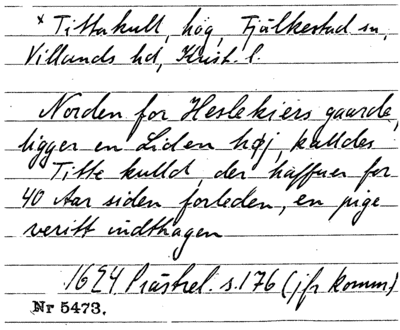 * Tittakull, hög, Fjälkestad sn,
Villands hd, Krist. l.
Norden for Heslekiers gaarde,
ligger en Liden høj, kalldes
Titte kulld, der haffuer for
40 Aar siden forleden, en pige
veritt indthagen
1624 Prästrel. s. 176 (jfr komm)
Nr 5473.